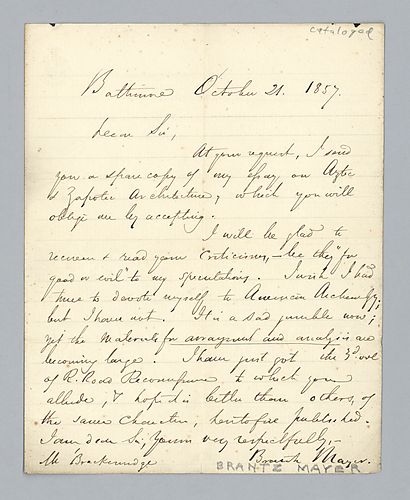 cataloged
Baltimore October 21. 1857.
Dear Sir,
At your request, I send
you a spare copy of my essay, on Aztec
& Zapotec Architecture, which you will
oblige me by accepting.
I will be glad to
receive & read your criticisms, - be they "for
good or evil" to my speculations. I wish I had
time to devote myself to American Archaeology;
but I have not. It is a sad jumble now;
yet the materials for arrangement and analysis are
becoming large. I have just got the 3d vol
of R. Road Reconnaissance, to which you
allude, & hope it is better than others, of
the same character, heretofore published.
I am dear Sir, Yours very respectfully, -
Mr Brackenridge Brantz Mayer.
BRANTZ MAYER